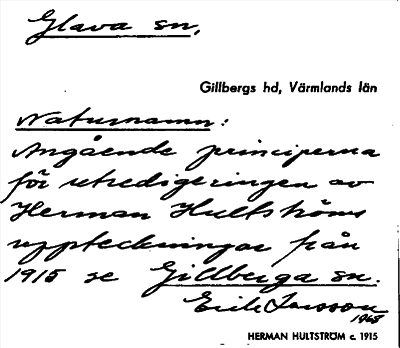 Glava sn,
Gillbergs hd, Värmlands län
Naturnamn:
Angående principerna
för utredigeringen av
Herman Hultströms
uppteckningar från
1915 se Gillberga sn.
Erik Larsson
1968
HERMAN HULTSTRÖM c. 1915